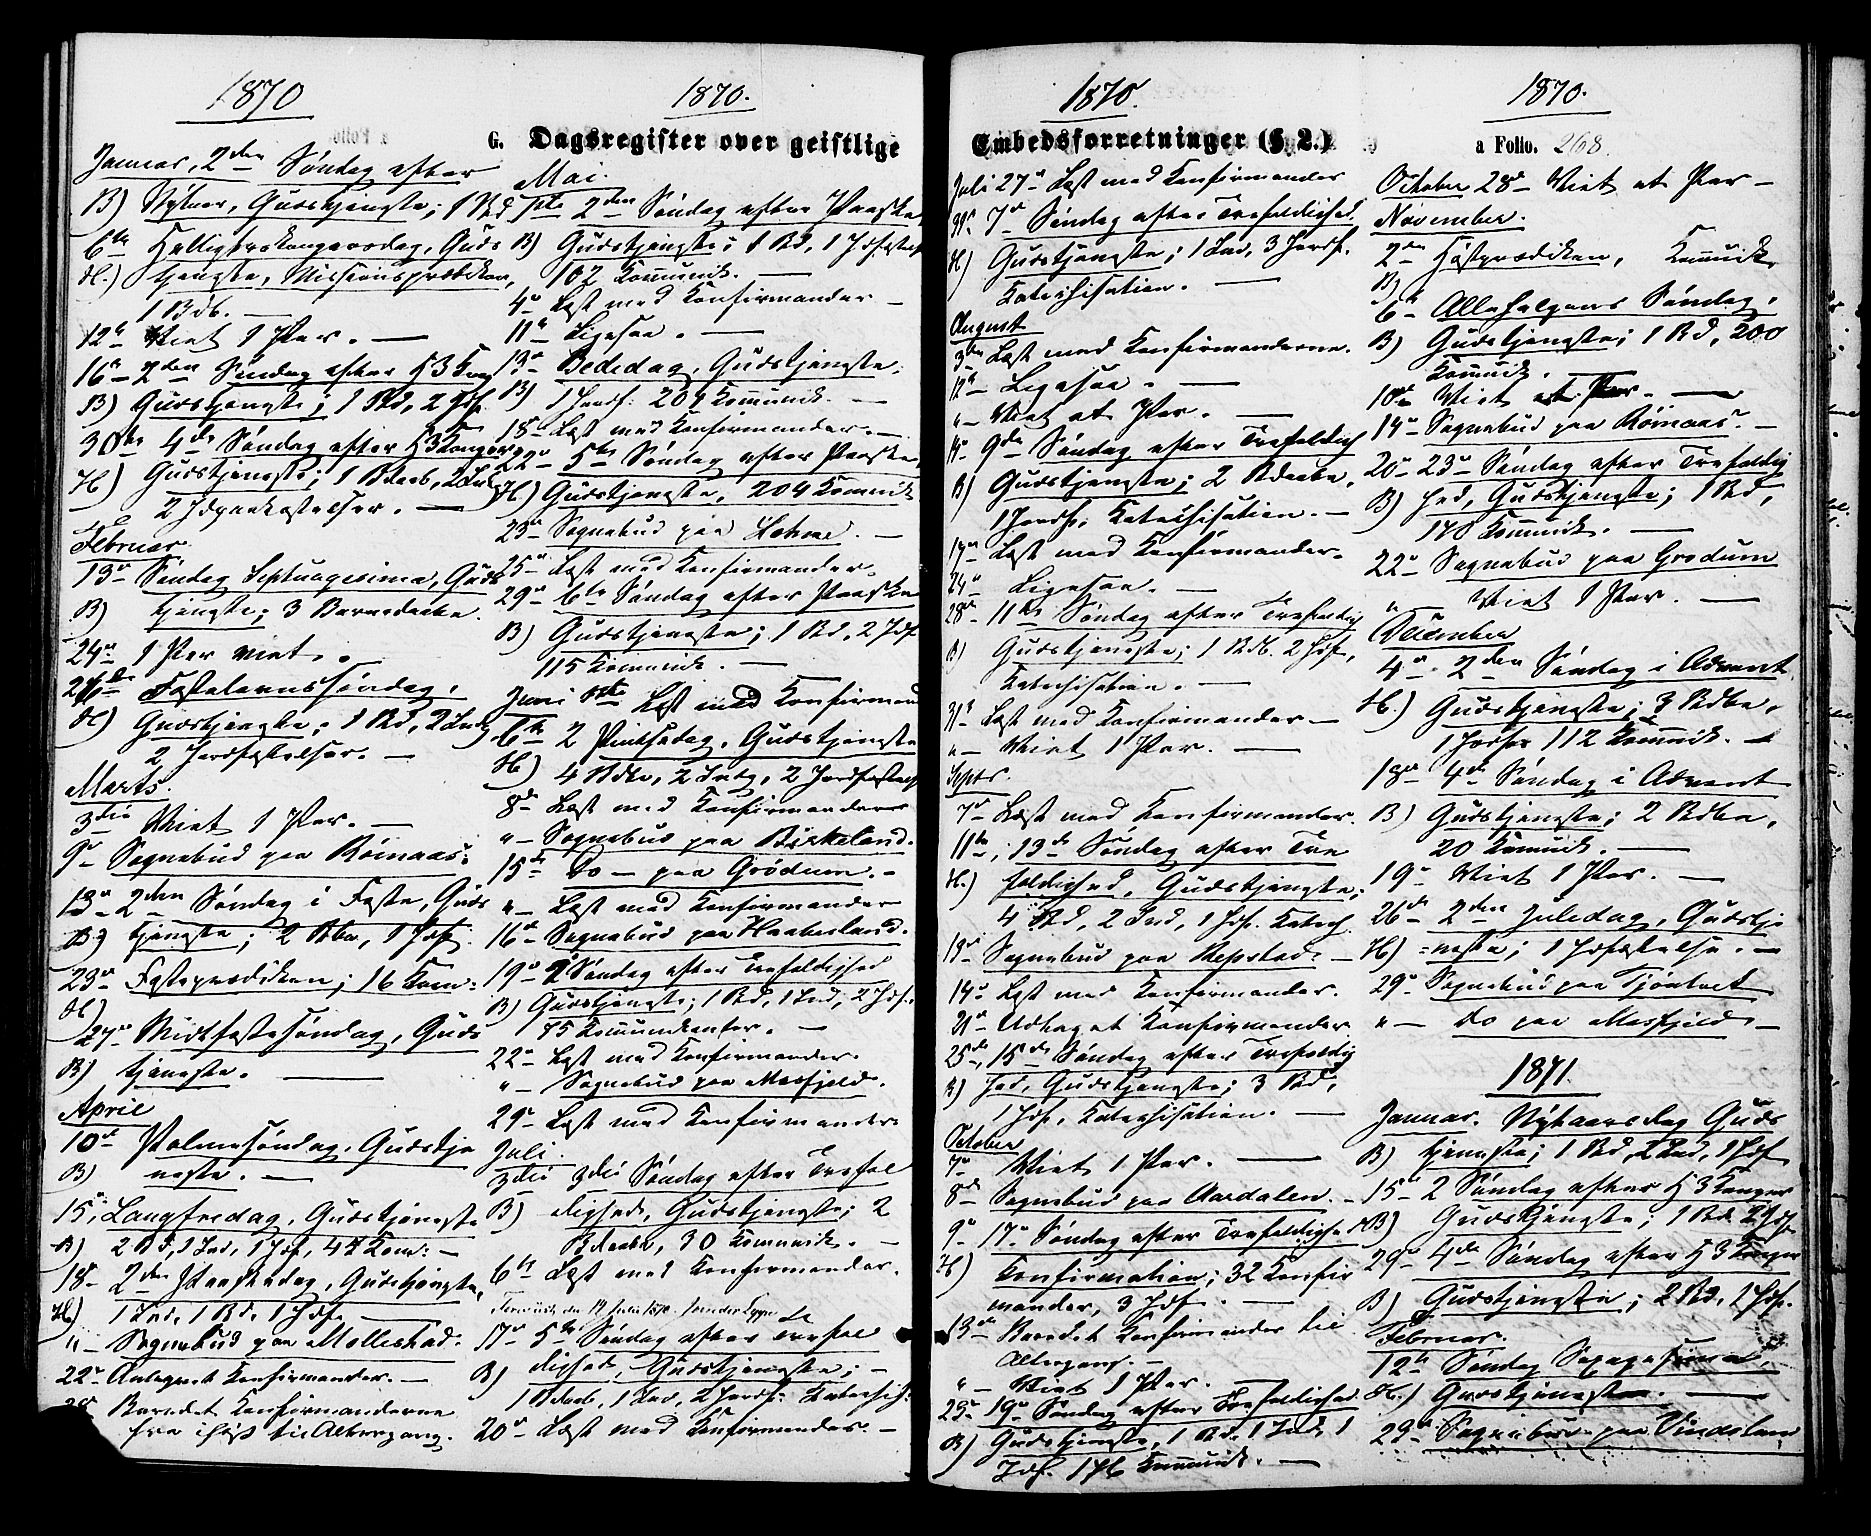 1870
G. Dagsregister over geistlige
Januar, 2den Søndag efter
B) Nytaar, Gudstjeneste; 1 Bd
6te Helligtrekongersdag, Guds
H.) tjeneste, Missionsprædiken,
1 Bdb. —
12te Viet 1 Par. —
16de 2den Søndag efter H3Kong
B) Gudstjeneste; 1 Bd, 2 Jdf.
30te 4de Søndag efter H3Konger
H) Gudstjeneste; 1 Bdaab, 2 Indl
2 Jdpaakastelser. —
Februar
13de Søndag Septuagesima, Guds
B) tjeneste; 3 Barnedaabe.
24de 1 Par viet.
27de Fastelavnssøndag,
H) Gudstjeneste; 1 Bd, 2 Indl
2 Jordfæstelser. —
Marts.
3die Viet 1 Par. —
9de Sognebud paa Rømaas.
13de 2den Søndag i Faste, Guds
B) tjeneste; 2 Bdbe, 1 Jdf.
23de Fasteprædiken; 16 Kom:
H)
27de Midtfastesøndag, Guds
B) tjeneste. —
April
10de Palmesøndag, Gudstje
B) neste. —
15, Langfredag, Gudstjeneste
B) 2 Bd, 1 Ind, 1 Jdf, 44 Kom: —
18de 2den Paaskedag, Gudstjeneste,
H) 1 Ind, 1 Bd, 1 Jdf. —
" – Sognebud paa Mollestad.
22de Antegnet Konfirmander. —
Beredet Konfirmanderne
til Altergang.
1870.
Mai.
1ste 2den Søndag efter Paaske
B) Gudstjeneste; 1 Bd, 1 Jdfæstel
102 Kommunik. —
4de Læst med Konfirmander —
11te Ligesaa. —
13de Bededag, Gudstjeneste.
B) 1 Jordf: 209 Kommunik. —
18de Læst med Konfirmander. —
22de 5te Søndag efter Paaske,
H) Gudstjeneste, 204 Kommunik
23de Sognebud paa —
25de Læst med Konfirmander.
29de 6te Søndag efter Paaske
B) Gudstjeneste; 1 Bd, 2 Jdf
115 Kommunik. —
Juni 1ste Læst med Konfirmand
6te 2 Pintsedag, Gudstjeneste
H) 4 Bdbe, 2 Indg, 2 Jordfæstels
8de Læst med Konfirmanderne
" – Sognebud paa Birkeland.
15de Do – paa Grødum. –
" – Læst med Konfirmander
16de Sognebud paa Haaberland.
19de 2 Søndag efter Trefoldighed
B) Gudstjeneste; 1 Bd, 1 Ind, 2 Jdf.
75 Kommunikanter. —
22de Læst med Konfirmander.
" – Sognebud paa Mosfjeld.
29de Læst med Konfirmander
Juli.
3die 3die Søndag efter Trefol
B) dighed, Gudstjeneste; 2
Bdaabe, 30 Kommunik. —
6te Læst med Konfirmander.
17de 5te Søndag efter Trefol
B) dighed, Gudstjeneste; —
1 Bdaab, 1 Ind, 2 Jordf: Katechis:
20de Læst med Konfirmander. —
1870.
Embedsforretninger (§ 2.)
Juli 27de Læst med Konfirmander
7de Søndag efter Trefoldighed.
H) Gudstjeneste; 1 Ind, 3 Jordf.
Katechisation. —
August
3die Læst med Konfirmanderne.
12te Ligesaa. —
" – Viet et Par. —
14de 9de Søndag efter Trefoldigh
B) Gudstjeneste; 2 Bdaabe,
1 Jordf. Katechisation. —
17de Læst med Konfirmander.
24de Ligesaa. —
28de 11te Søndag efter Trefoldig
B) Gudstjeneste; 1 Bdb. 2 Jdf,
Katechisation. —
31te Læst med Konfirmander —
" – Viet 1 Par. —
Septr.
7de Læst med Konfirmander.
11te, 13de Søndag efter Tre
H.) foldighed, Gudstjeneste;
4 Bd, 2 Ind, 1 Jdf. Katech.
13de Sognebud paa Repstad. —
14de Læst med Konfirmander.
21de Udtaget Konfirmander.
25de, 15de Søndag efter Trefoldig
B) hed, Gudstjeneste; 3 Bd,
1 Jdf, Katechisation. —
October
7de Viet 1 Par. —
8de Sognebud paa Aardalen. –
9de 17de Søndag efter Trefoldighed
H) Konfirmation; 32 Konfir
mander, 3 Jdf. —
13de Beredet Konfirmander til
Altergang. —
" – Viet 1 Par. —
23de 19de Søndag efter Trefoldighed
B) Gudstjeneste, 1 Bd, 1 Ind, 1
Jdf. 176 Kommunik. —
1870.
a Folio. 268.
October 28de Viet et Par —
November.
2den Høstprædiken, Kommunik
B)
6te Allehelgens Søndag,
B) Gudstjeneste; 1 Bd, 200
Kommunik. —
10de Viet et Par. —
14de Sognebud paa Rømaas. —
20de 23de Søndag efter Trefoldig
B) hed, Gudstjeneste; 1 Bd,
170 Kommunik. —
22de Sognebud paa Grødum
" – Viet 1 Par. —
December
4de 2den Søndag i Advent
H.) Gudstjeneste; 3 Bdbe,
1 Jordf 112 Kommunik. —
18de 4de Søndag i Advent
B) Gudstjeneste; 2 Bdbe,
20 Kommunik. —
19de Viet 1 Par. —
26de 2den Juledag, Gudstje
H) =neste; 1 Jdfæstelse. —
29de Sognebud paa Tjøntvet
" – Do paa Mosfjeld. —
1871.
Januar. Nytaarsdag Guds
B) tjeneste; 1 Bd, 2 Ind, 1 Jdf
15de 2 Søndag efter H3Konger
B) Gudstjeneste; 1 Bd. 2 Jdf.
29de 4de Søndag efter H3Konger
B) Gudstjeneste; 2 Bd, 1 Jdf.
Februar.
12te Søndag Sexagesima,
H.) Gudstjeneste. —
23de Sognebud paa Vindslan